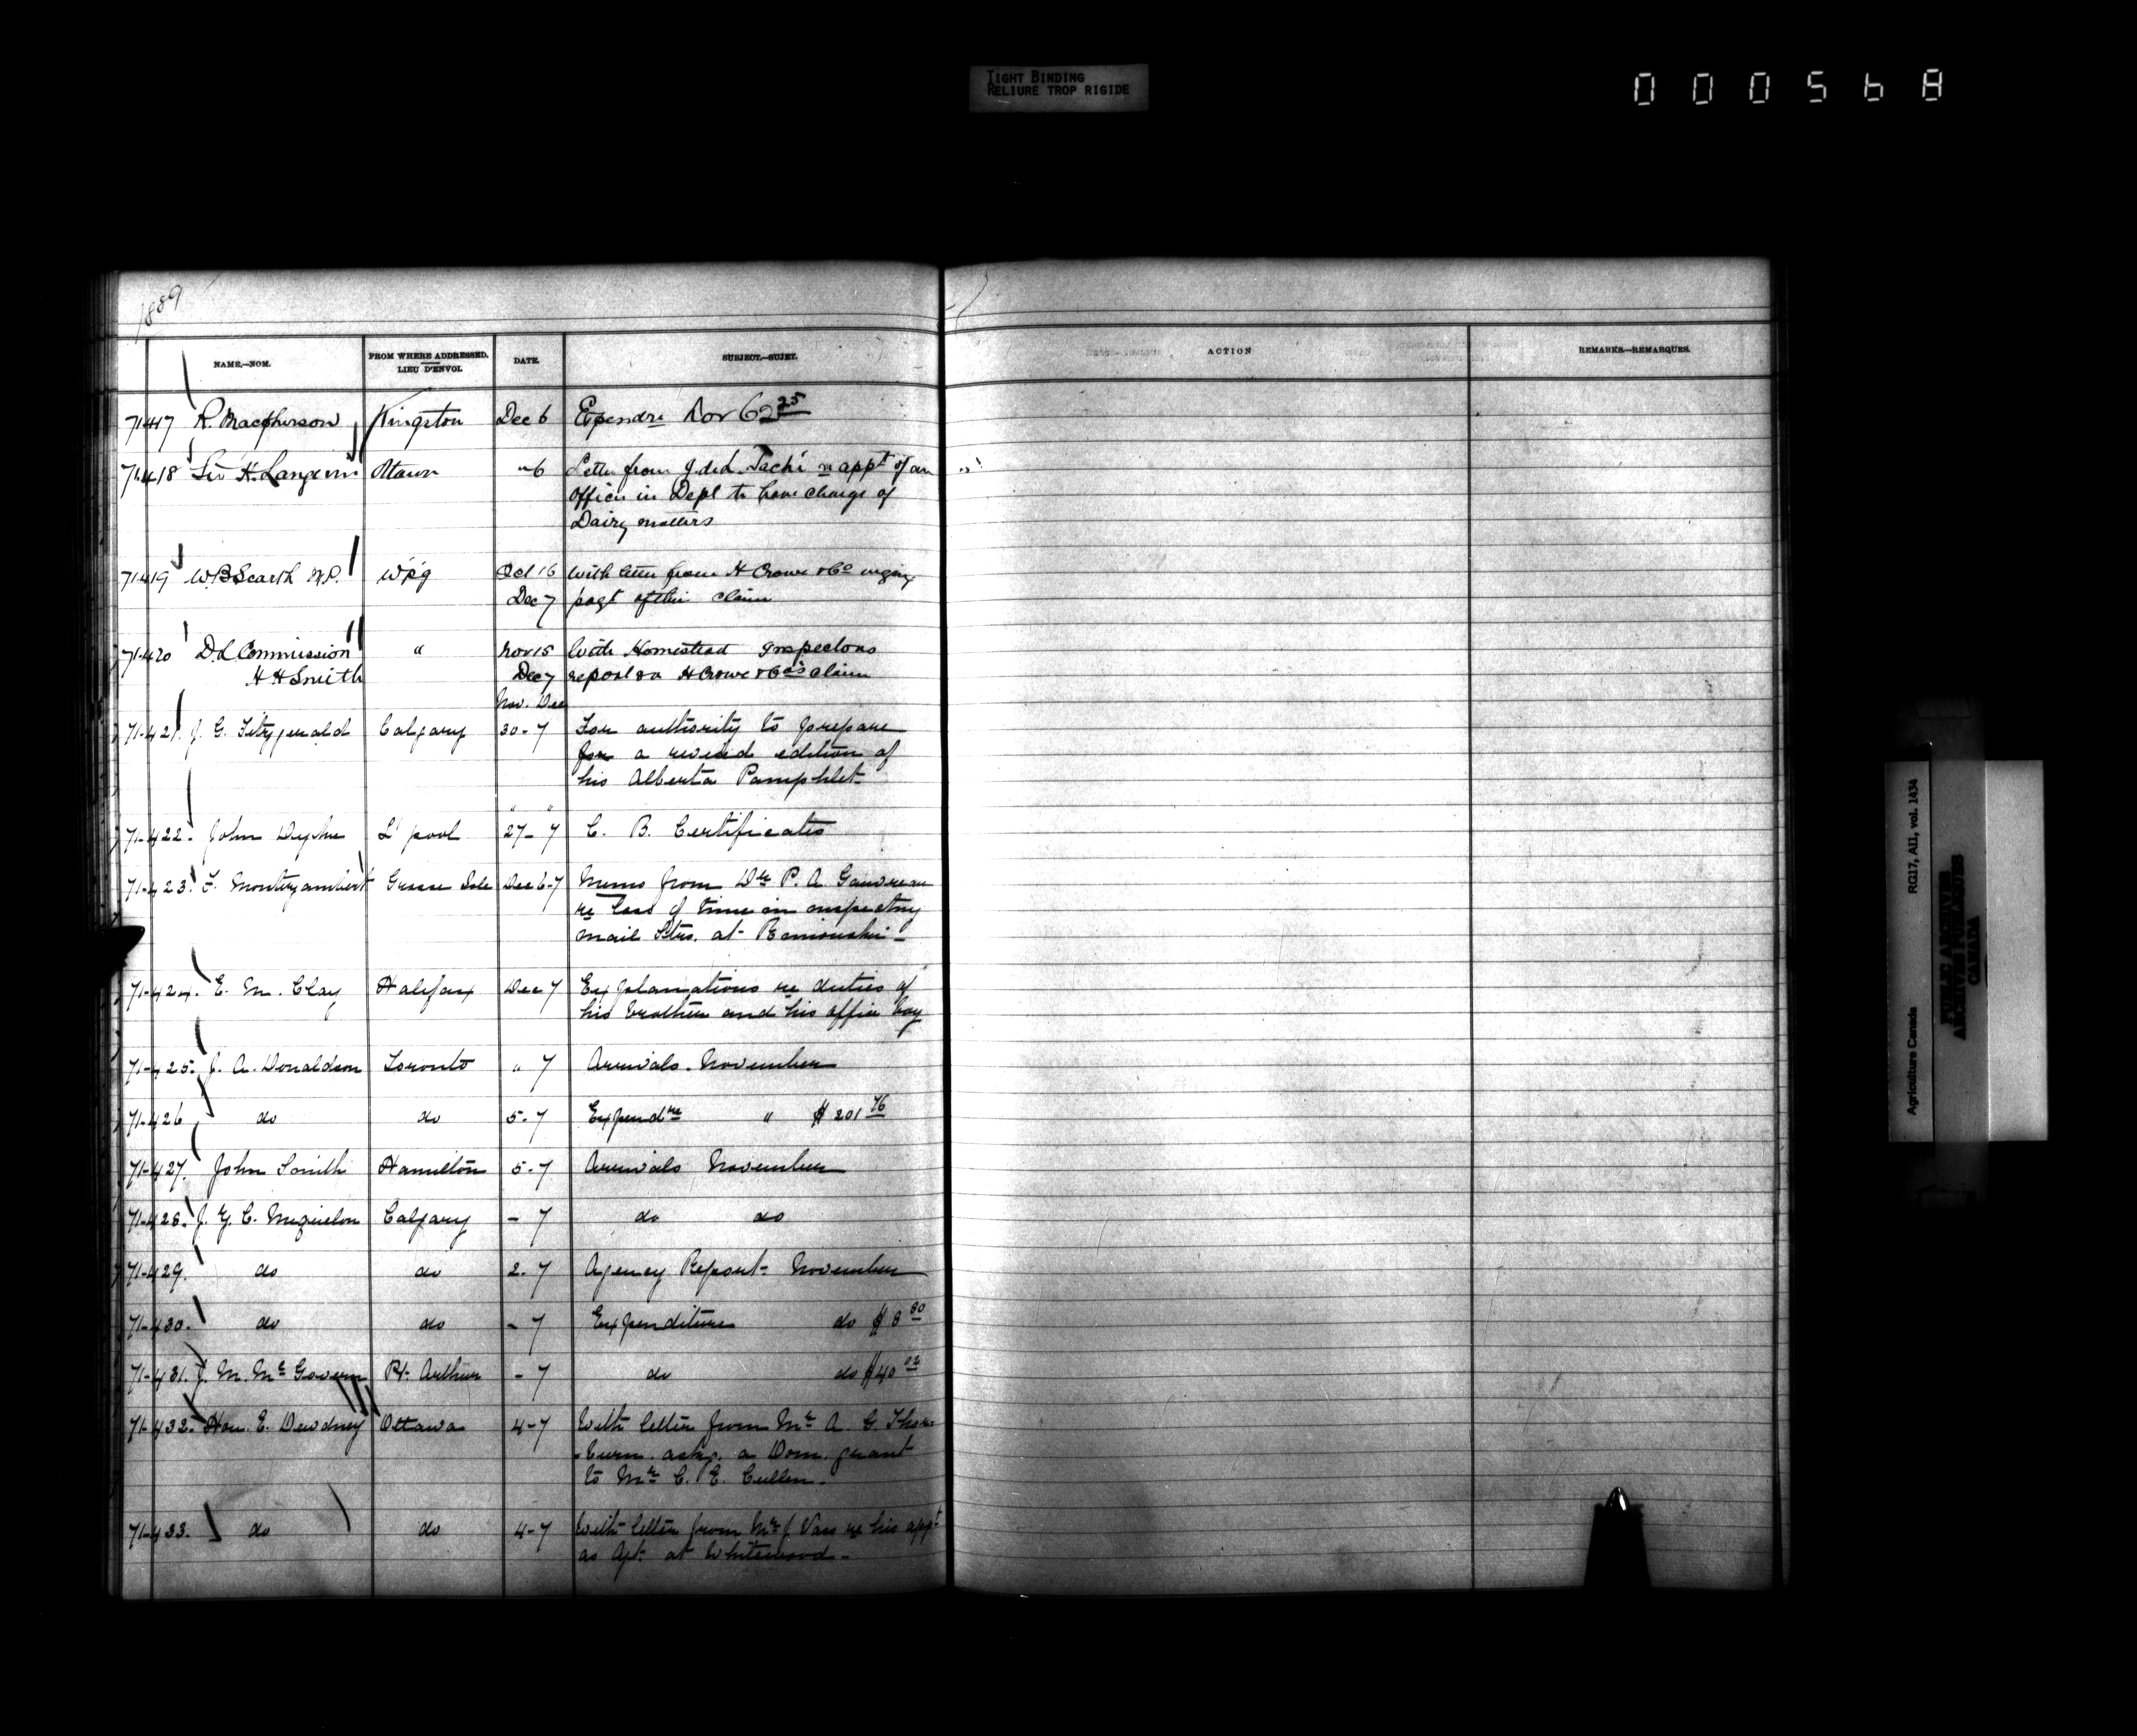 TIGHT BINDING
RELIURE TROP RIGIDE
000568
1889
NAME.—NOM.
FROM WHERE ADDRESSED.
LIEU D'ENVOI.
DATE.
SUBJECT.—SUJET.
ACTION
REMARKS.—REMARQUES.
71417 R. Macpherson Kingston Dec 6 Expendre Nov 62 25
71418 Sir H. Langevin Ottawa " 6 Letter from J. de L. Taché re appt of an
officer in Dept to have charge of
Dairy matters
71419 W B Scarth M.P. W'p'g Oct 16 With letter from H Crowe & Co urging
Dec 7 paygt of their claim
71420 D L Commission " Nov 15 With Homestead Inspectors
H H Smith Dec 7 report on H Crowe & Co's claim
Nov. Dec
71-421. J. G. Fitzgerald Calgary 30-7 For authority to prepare
for a revised edition of
his Alberta Pamphlet
" "
71-422. John Dyke L'pool 27-7 C. B. Certificates
71-423. F. Montizambert Grosse Isle Dec 6-7 Memo from Dr P. A. Gauvreau
re loss of time in inspecting
mail Strs. at Rimouski -
71-424. E. M. Clay Halifax Dec 7 Explanations re duties of
his brother and his office boy
71-425. J. A. Donaldson Toronto " 7 Arrivals. November
71-426 do do 5-7 Expendre " $ 201 76
71-427. John Smith Hamilton 5-7 Arrivals November
71-428. J. G. C. Calgary - 7 do do
71-429. do do 2-7 Agency Report November
71-430. do do - 7 Expenditure do $ 8 80
71-431. J. M. McGovern Pt. Arthur - 7 do do $ 40 02
71-432. Hon. E. Dewdney Ottawa 4-7 With letter from Mr A. G. Thor-
-burn askg. a Dom. grant
to Mr C. E. Cullen.
71-433. do do 4-7 With letter from Mr J. Vass re his appt
as Agt. at Whitewood -
RG17, AII, vol. 1434
Agriculture Canada
PUBLIC ARCHIVES
ARCHIVES PUBLIQUES
CANADA